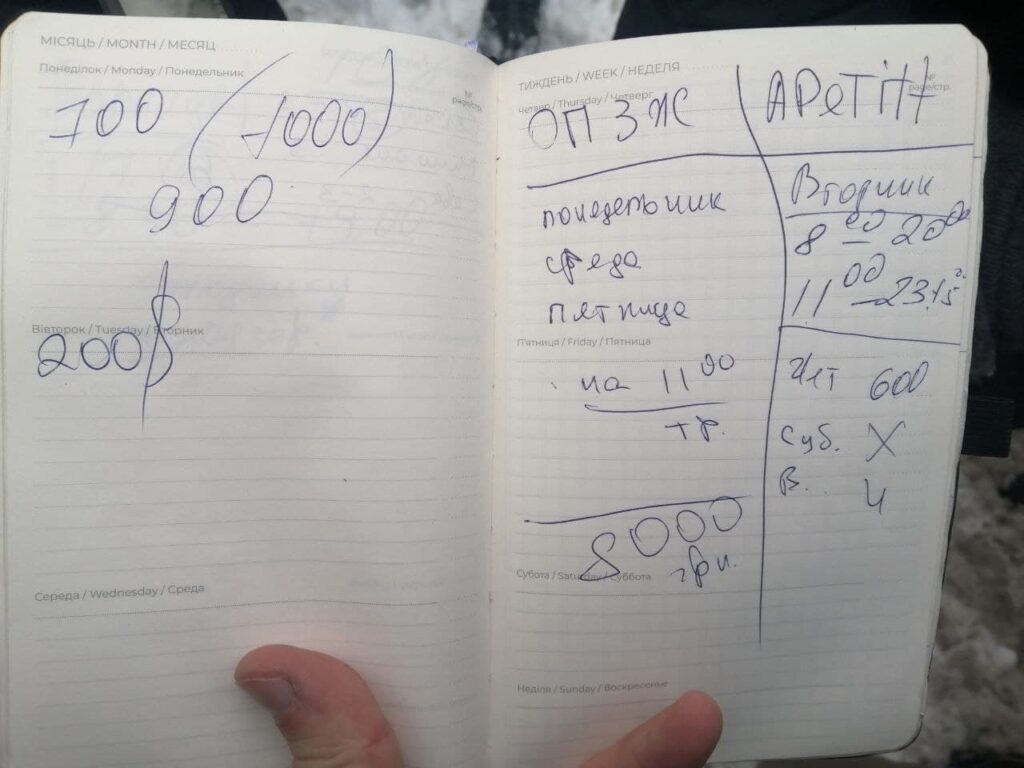 МІСЯЦЬ / MONTH / МЕСЯЦ
Понеділок / Monday / Понедельник
№
page/стр.
700 (1000)
900
Вівторок / Tuesday / Вторник
200$
Середа / Wednesday / Среда
ТИЖДЕНЬ / WEEK / НЕДЕЛЯ
№
page/стр.
Четвер / Thursday / Четверг
ОПЗЖ
понедельник
среда
пятница
П'ятниця / Friday / Пятница
на 11 00
тр.
8000
грн.
Субота / Saturday / Суббота
Неділя / Sunday / Воскресенье
Вторник
8 00 - 20 00
11 00 - 23 15
600
Суб. X
В. Ч